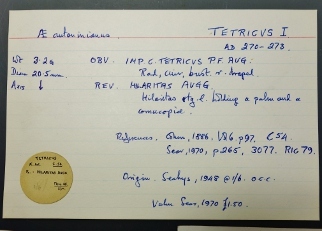 Æ antoninianus.
TETRICUS I
AD 270-273.
Wt 2.2g
Diam 20.5mm.
Axis ↓
OBV. IMP C. TETRICUS P.F. AVG:
Rad, cuir, bust. r. drapd.
REV. HILARITAS AVGG.
Hilaritas stg l. holding a palm and a
cornucopia.
References. Cohen, 1886. V.6 p97. C54.
Sear, 1970, p265, 3077. RIC 79.
Origin. Seabys, 1948 @1/6. occ.
Value Sear, 1970 £1.50.
TETRICUS
R.: HILARITAS AVGG